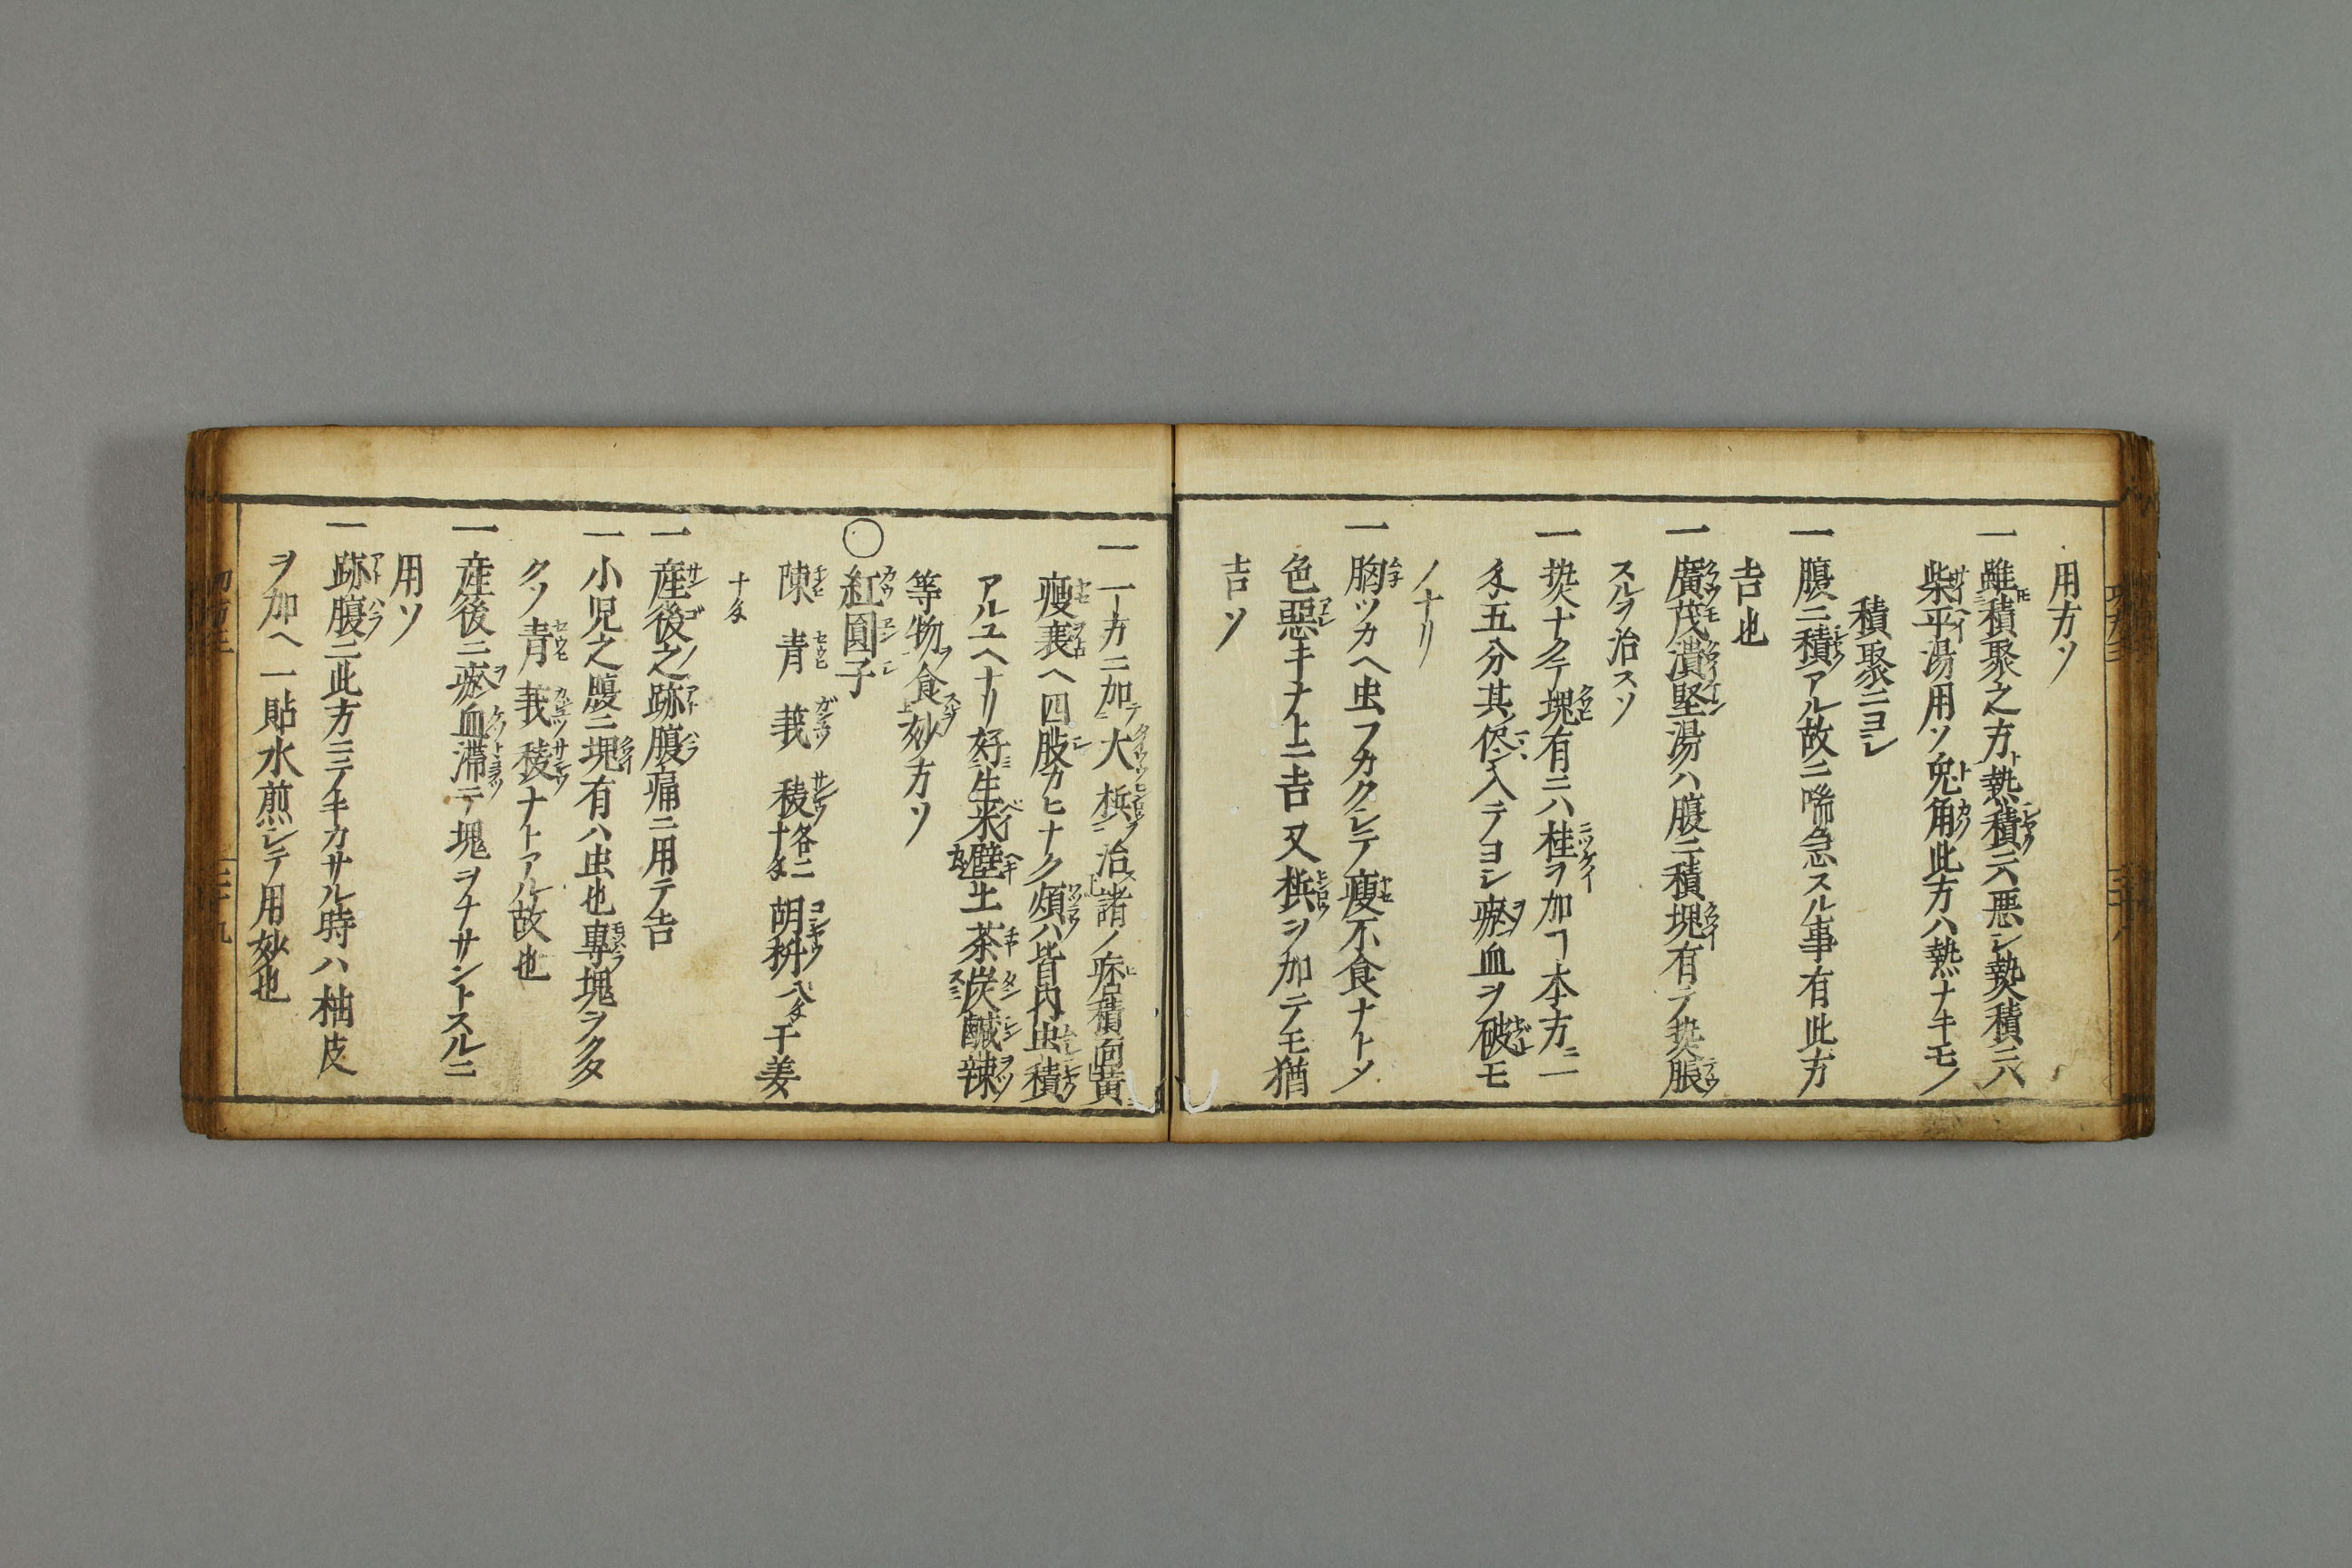 用方ソ
一雖積聚之方ト熱積ニハ悪シ熱積ニハ
柴平湯用ソ兎角此方ハ熱ナキモノ
積聚ニヨシ
一腹ニ積アル故ニ喘急スル事有此方
吉也
一廣茂潰堅湯ハ腹ニ積塊有テ熱脹
スルヲ治スソ
一熱ナクテ塊有ニハ桂ヲ加フ本方ニ一
匁五分其侭入テヨシ瘀血ヲ破モ
ノナリ
一胸ツカヘ虫フカクシテ瘦不食ナトソ
色惡キナトニ吉又梹ヲ加テモ猶
吉ソ
一一方ニ加テ大梹ヲ治諸ノ疾積面黄
瘦衰ヘ四肢カヒナク煩ハ皆内虫積
アルユヘナリ好生米壁土茶炭鹹辣
等物ヲ食妙方ソ
〇紅圓子
陳青莪稜各二十匁胡椒八匁干姜
十匁
一産後之跡腹痛ニ用テ吉
一小児之腹ニ塊有ハ虫也專塊ヲクタ
クソ青莪稜ナトアル故也
一産後ニ瘀血滞テ塊ヲナサントスルニ
用ソ
一跡腹ニ此方ニテキカサル時ハ柚皮
ヲ加ヘ一貼水煎シテ用妙也